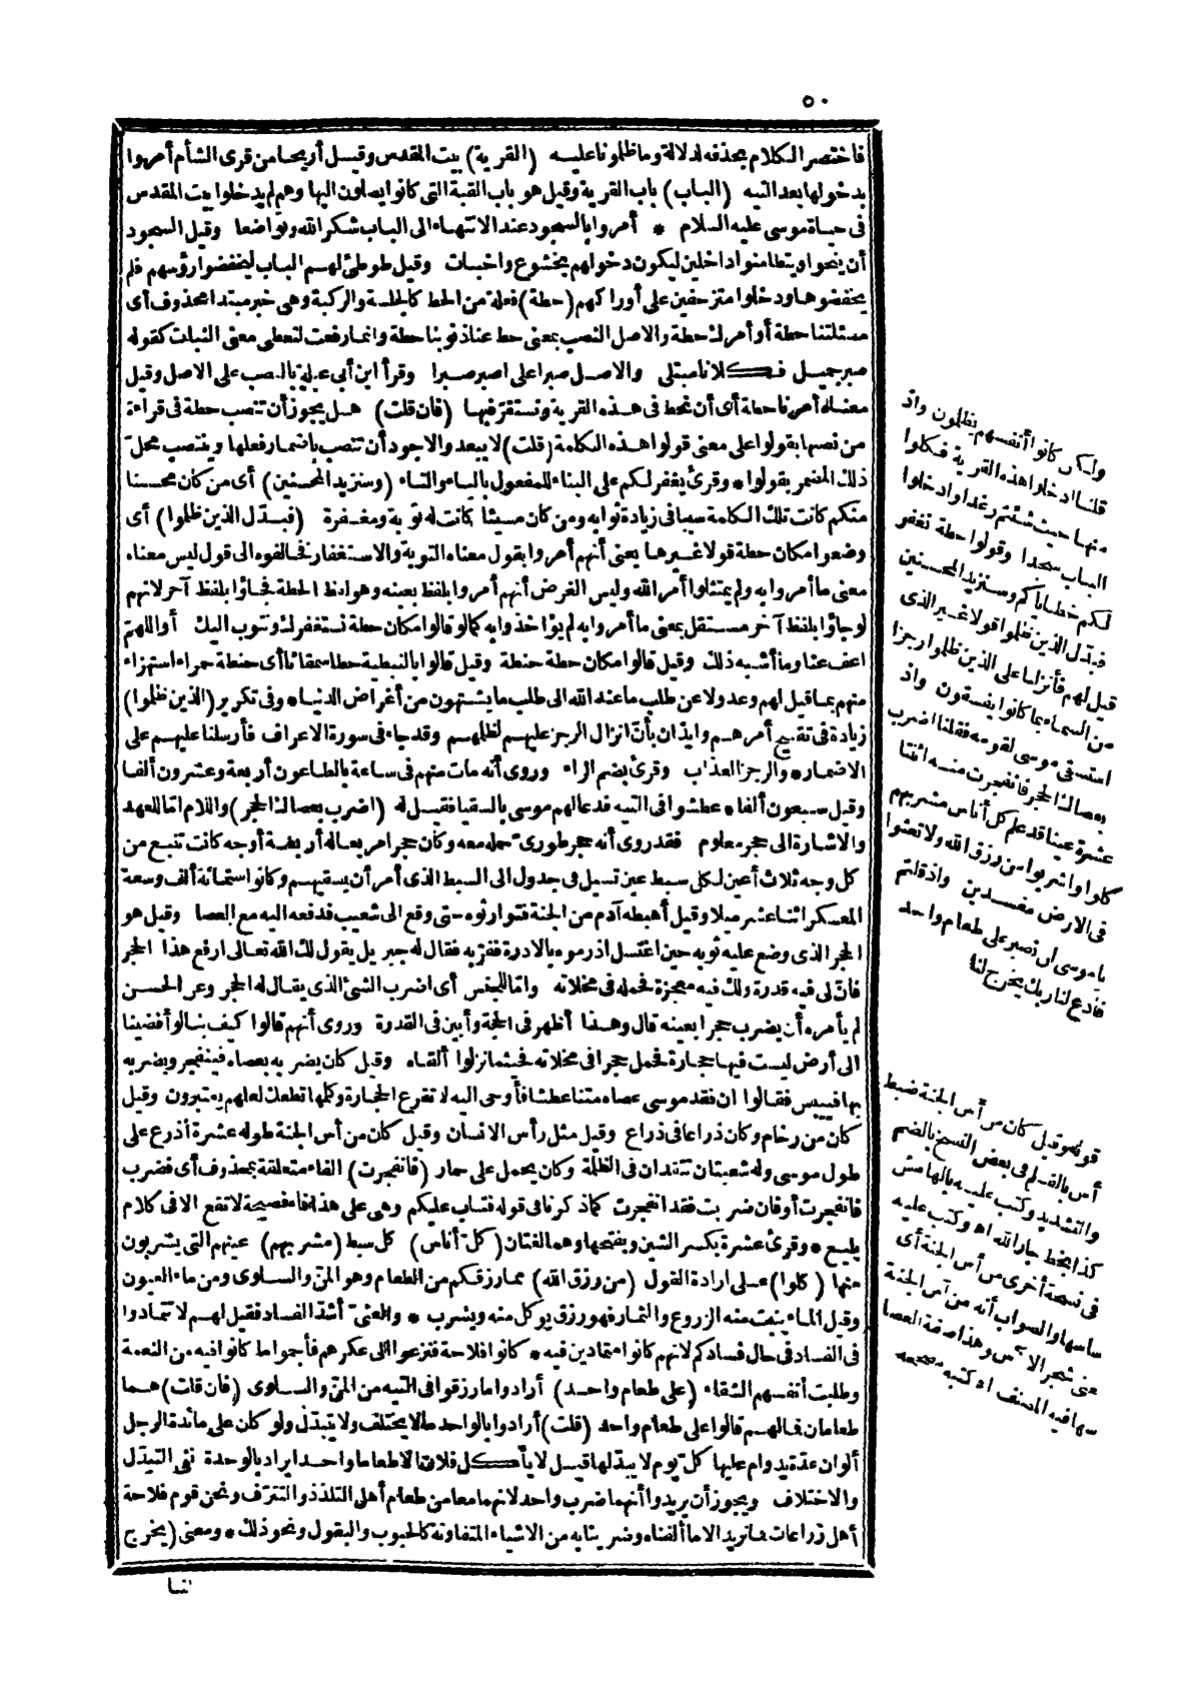 ٥٠
فاختصر الكلام بحذفه لدلالة وما ظلمونا عليه (القرية) بيت المقدس وقيل أريحا من قرى الشأم أمروا
بدخولها بعد التيه (الباب) باب القرية وقيل هو باب القبة التى كانوا يصلون اليها وهم لم يدخلوا بيت المقدس
فى حياة موسى عليه السلام * أمروا بالسجود عند الانتهاء الى الباب شكر الله وتواضعا وقيل السجود
أن ينحنوا ويتطامنوا داخلين ليكون دخولهم بخشوع واخبات وقيل طوطئ لهم الباب ليخفضوا رؤسهم فلم
يخفضوها ودخلوا متزحفين على أوراكهم (حطة) فعلة من الحط كالجلسة والركبة وهى خبر مبتدا محذوف أى
مسئلتنا حطة أو أمرك حطة والاصل النصب بمعنى حط عنا ذنوبنا حطة وانما رفعت لتعطى معنى الثبات كقوله
صبر جميل فكلانا مبتلى والاصل صبرا على اصبر صبرا وقرأ ابن أبى عبلة بالنصب على الاصل وقيل
معناه أمرنا حطة أى أن نحط فى هذه القرية ونستقر فيها (فان قلت) هل يجوز أن تنصب حطة فى قراءة
من نصبها بقولوا على معنى قولوا هذه الكلمة (قلت) لا يبعد والاجود أن تنصب باضمار فعلها وينتصب محل
ذلك المضمر بقولوا * وقرئ يغفر لكم على البناء للمفعول بالياء والتاء (وسنزيد المحسنين) أى من كان محسنا
منكم كانت تلك الكلمة سببا فى زيادة ثوابه ومن كان مسيئا كانت له توبة ومغفرة (فبدّل الذين ظلموا) أى
وضعوا مكان حطة قولا غيرها يعنى أنهم أمروا بقول معناه التوبة والاستغفار فخالفوه الى قول ليس معناه
معنى ما أمروا به ولم يمتثلوا أمر الله وليس الغرض أنهم أمروا بلفظ بعينه وهو لفظ الحطة فجاؤا بلفظ آخر لانهم
لو جاؤا بلفظ آخر مستقل بمعنى ما أمروا به لم يؤاخذوا به كما لو قالوا مكان حطة نستغفرك ونتوب اليك أو اللهمّ
اعف عنا وما أشبه ذلك وقيل قالوا مكان حطة حنطة وقيل قالوا بالنبطية حطا سمقاثا أى حنطة حمراء استهزاء
منهم بما قيل لهم وعدولا عن طلب ما عند الله الى طلب ما يشتهون من أغراض الدنيا * وفى تكرير (الذين ظلموا)
زيادة فى تقبيح أمرهم وايذان بأن انزال الرجز عليهم لظلمهم وقد جاء فى سورة الاعراف فأرسلنا عليهم على
الاضمار * والرجز العذاب وقرئ بضم الراء وروى أنه مات منهم فى ساعة بالطاعون أربعة وعشرون ألفا
وقيل سبعون ألفا * عطشوا فى التيه فدعا لهم موسى بالسقيا فقيل له (اضرب بعصاك الحجر) واللام اما للعهد
والاشارة الى حجر معلوم فقد روى أنه حجر طورى حمله معه وكان حجرا مربعا له أربعة أوجه كانت تنبع من
كل وجه ثلاث أعين لكل سبط عين تسيل فى جدول الى السبط الذى أمر أن يسقيهم وكانوا ستمائة ألف وسعة
المعسكر اثنا عشر ميلا وقيل أهبطه آدم من الجنة فتوارثوه حتى وقع الى شعيب فدفعه اليه مع العصا وقيل هو
الحجر الذى وضع عليه ثوبه حين اغتسل اذ رموه بالادرة ففر به فقال له جبريل يقول لك الله تعالى ارفع هذا الحجر
فان لى فيه قدرة ولك فيه معجزة فحمله فى مخلاته وامّا للجنس أى اضرب الشئ الذى يقال له الحجر وعن الحسن
لم يأمره أن يضرب حجرا بعينه قال وهذا أظهر فى الحجة وأبين فى القدرة وروى أنهم قالوا كيف بنا لو أفضينا
الى أرض ليست فيها حجارة فحمل حجرا فى مخلاته فحيثما نزلوا ألقاه وقيل كان يضربه بعصاه فينفجر ويضربه
بها فييبس فقالوا ان فقد موسى عصاه متنا عطشا فأوحى اليه لا تقرع الحجارة وكلمها تطعك لعلهم يعتبرون وقيل
كان من رخام وكان ذراعا فى ذراع وقيل مثل رأس الانسان وقيل كان من أس الجنة طوله عشرة أذرع على
طول موسى وله شعبتان تتقدان فى الظلمة وكان يحمل على حمار (فانفجرت) الفاء متعلقة بمحذوف أى فضرب
فانفجرت أو فان ضربت فقد انفجرت كما ذكرنا فى قوله فتاب عليكم وهى على هذا فاء فصيحة لا تقع الا فى كلام
بليغ * وقرئ عشرة بكسر الشين وبفتحها وهما لغتان (كل أناس) كل سبط (مشربهم) عينهم التى يشربون
منها (كلوا) على ارادة القول (من رزق الله) مما رزقكم من الطعام وهو المنّ والسلوى ومن ماء العيون
وقيل الماء ينبت منه الزروع والثمار فهو رزق يؤكل منه ويشرب * والعثىّ أشدّ الفساد فقيل لهم لا تتمادوا
فى الفساد فى حال فسادكم لانهم كانوا متمادين فيه * كانوا فلاحة فنزعوا الى عكرهم فأجموا ما كانوا فيه من النعمة
وطلبت أنفسهم الشقاء (على طعام واحد) أرادوا ما رزقوا فى التيه من المنّ والسلوى (فان قلت) هما
طعامان فما لهم قالوا على طعام واحد (قلت) أرادوا بالواحد ما لا يختلف ولا يتبدّل ولو كان على مائدة الرجل
ألوان عدّة يداوم عليها كل يوم لا يبدّلها قيل لا يأكل فلان الا طعاما واحدا يراد بالوحدة نفى التبدّل
والاختلاف ويجوز أن يريدوا أنهما ضرب واحد لانهما معا من طعام أهل التلذذ والتترف ونحن قوم فلاحة
أهل زراعات فما نريد الا ما ألفناه وضرينا به من الاشياء المتفاوتة كالحبوب والبقول ونحو ذلك * ومعنى (يخرج
لنا
ولكن كانوا أنفسهم يظلمون واذ
قلنا ادخلوا هذه القرية فكلوا
منها حيث شئتم رغدا وادخلوا
الباب سجدا وقولوا حطة نغفر
لكم خطاياكم وسنزيد المحسنين
فبدّل الذين ظلموا قولا غير الذى
قيل لهم فأنزلنا على الذين ظلموا رجزا
من السماء بما كانوا يفسقون واذ
استسقى موسى لقومه فقلنا اضرب
بعصاك الحجر فانفجرت منه اثنتا
عشرة عينا قد علم كل أناس مشربهم
كلوا واشربوا من رزق الله ولا تعثوا
فى الارض مفسدين واذ قلتم
يا موسى لن نصبر على طعام واحد
فادع لنا ربك يخرج لنا
قوله وقيل كان من أس الجنة ضبط
أس بالقلم فى بعض النسخ بالضم
والتشديد وكتب عليه بالهامش
كذا بخط جار الله اه وكتب عليه
فى نسخة أخرى من أس الجنة أى
ساسها والصواب أنه من آس الجنة
يعنى شجر الآس وهذا صفة العصا
سها فيه المصنف اه كتبه مصححه